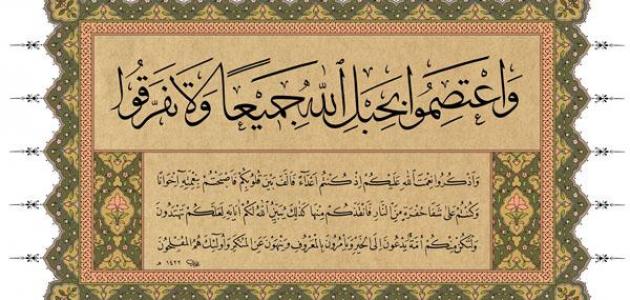 وَاعْتَصِمُوا بِحَبْلِ ٱللَّهِ جَمِيعًا وَلَا تَفَرَّقُوا
وَاذْكُرُوا نِعْمَتَ اللَّهِ عَلَيْكُمْ إِذْ كُنْتُمْ أَعْدَاءً فَأَلَّفَ بَيْنَ قُلُوبِكُمْ فَأَصْبَحْتُمْ بِنِعْمَتِهِ إِخْوَانًا
وَكُنْتُمْ عَلَى شَفَا حُفْرَةٍ مِنَ النَّارِ فَأَنْقَذَكُمْ مِنْهَا كَذَلِكَ يُبَيِّنُ اللَّهُ لَكُمْ آيَاتِهِ لَعَلَّكُمْ تَهْتَدُونَ
وَلْتَكُنْ مِنْكُمْ أُمَّةٌ يَدْعُونَ إِلَى الْخَيْرِ وَيَأْمُرُونَ بِالْمَعْرُوفِ وَيَنْهَوْنَ عَنِ الْمُنْكَرِ وَأُولَئِكَ هُمُ الْمُفْلِحُونَ
١٤٢٢ هـ